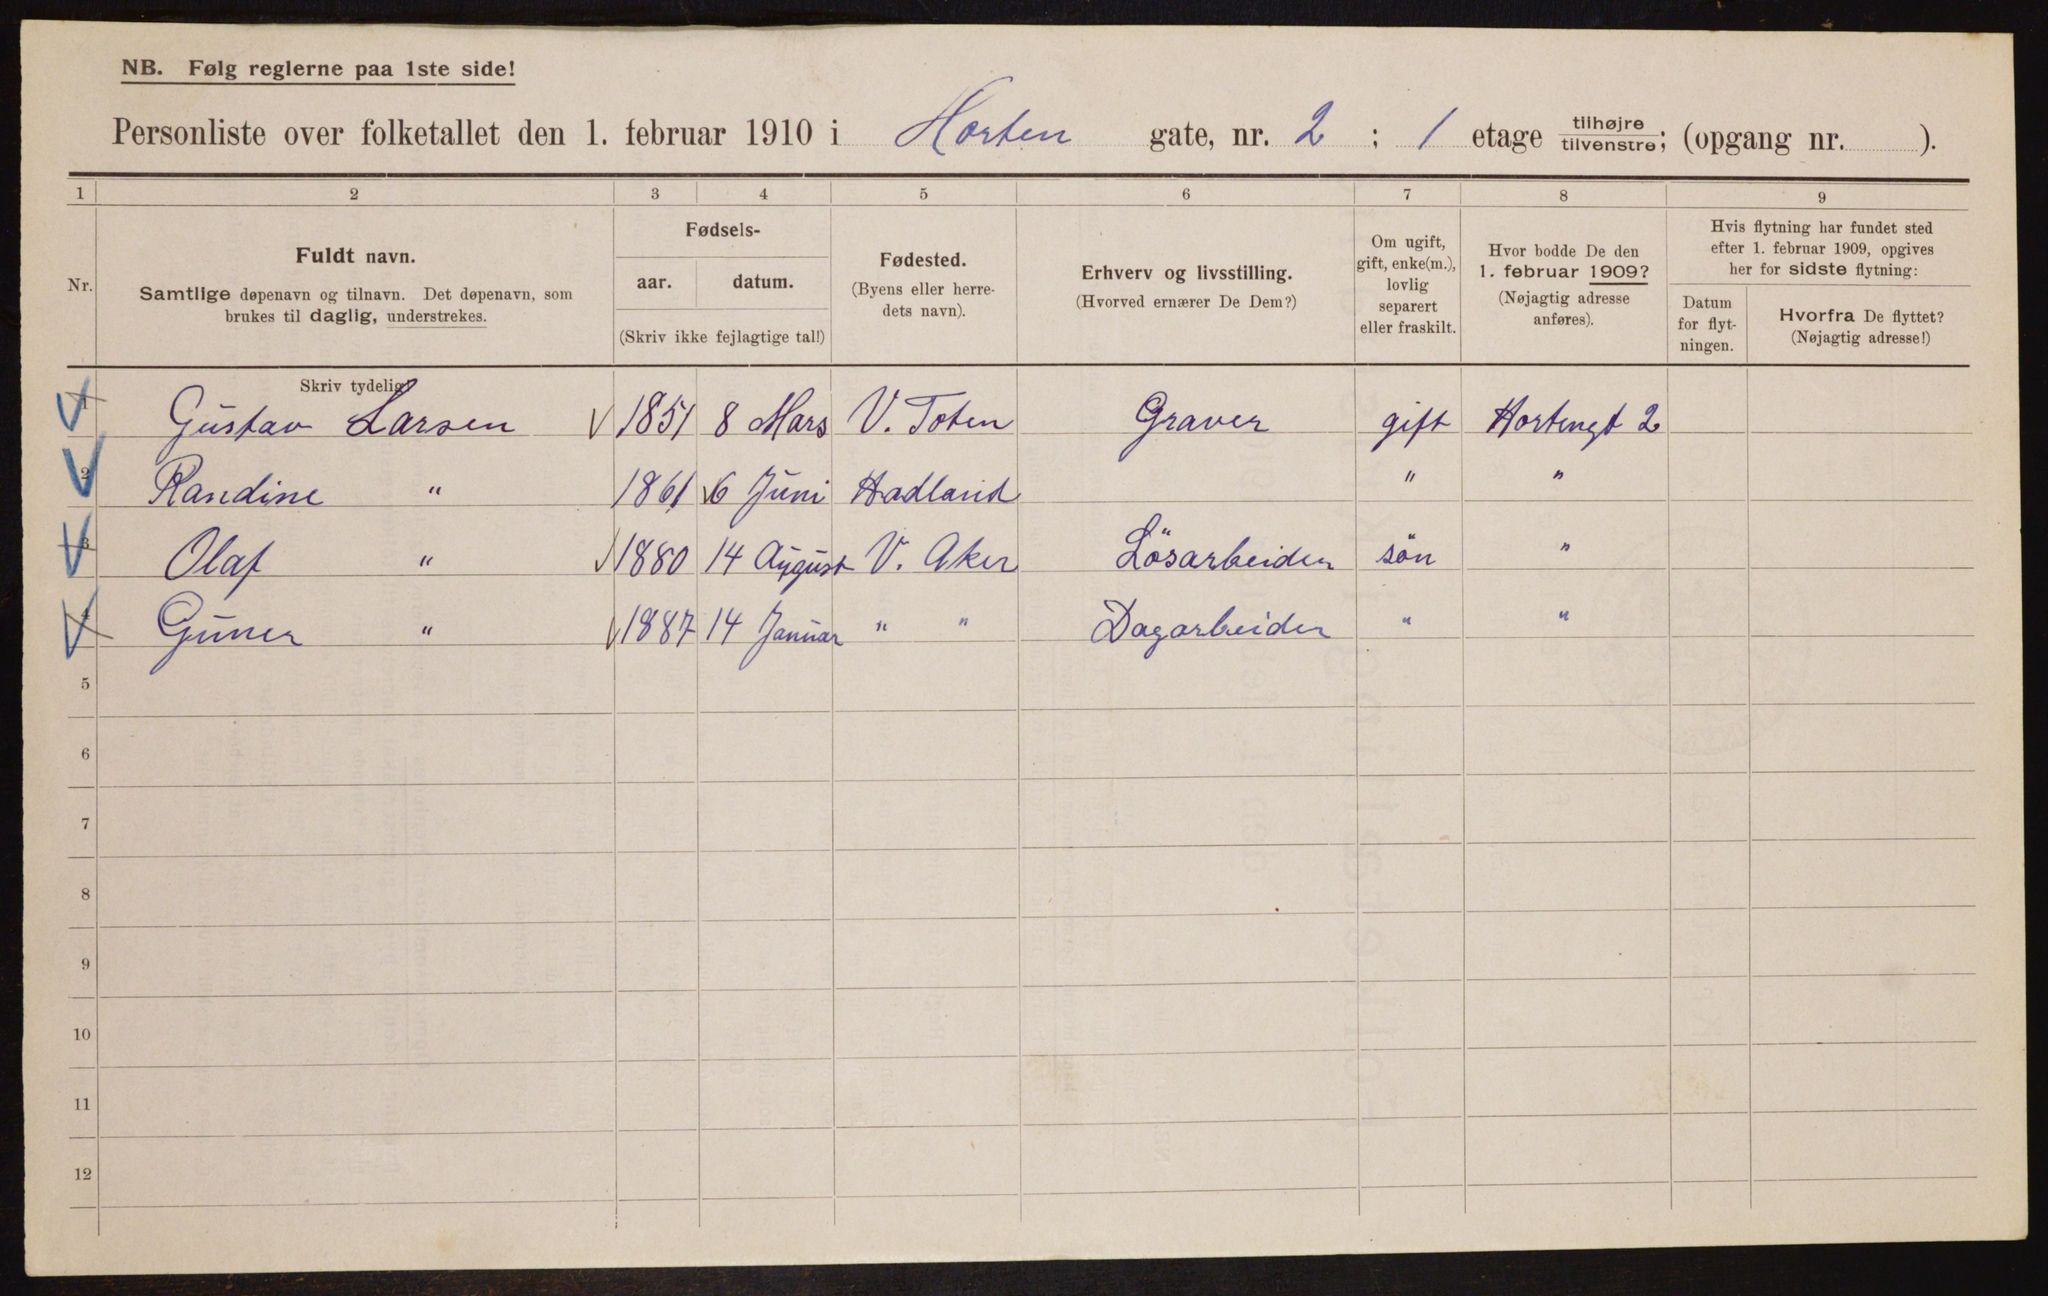 NB. Følg reglerne paa 1ste side!
Personliste over folketallet den 1. februar 1910 i Horten gate, nr. 2 ; 1 etage tilhøjre tilvenstre; (opgang nr. ).
1 2 3 4 5 6 7 8 9
Nr.
Fuldt navn.
Samtlige døpenavn og tilnavn. Det døpenavn, som
brukes til daglig, understrekes.
Fødsels-
aar. datum.
(Skriv ikke fejlagtige tal!)
Fødested.
(Byens eller herre-
dets navn).
Erhverv og livsstilling.
(Hvorved ernærer De Dem?)
Om ugift,
gift, enke(m.),
lovlig
separert
eller fraskilt.
Hvor bodde De den
1. februar 1909?
(Nøjagtig adresse
anføres).
Hvis flytning har fundet sted
efter 1. februar 1909, opgives
her for sidste flytning:
Datum
for flyt-
ningen.
Hvorfra De flyttet?
(Nøjagtig adresse!)
Skriv tydelig
1 Gustav Larsen 1851 8 Mars V. Toten Graver gift Hortengt 2
2 Randine " 1861 6 Juni Hadland " "
3 Olaf " 1880 14 August V. Aker Lösarbeider sön "
4 Guner " 1887 14 Januar " " Dagarbeider " "
5
6
7
8
9
10
11
12